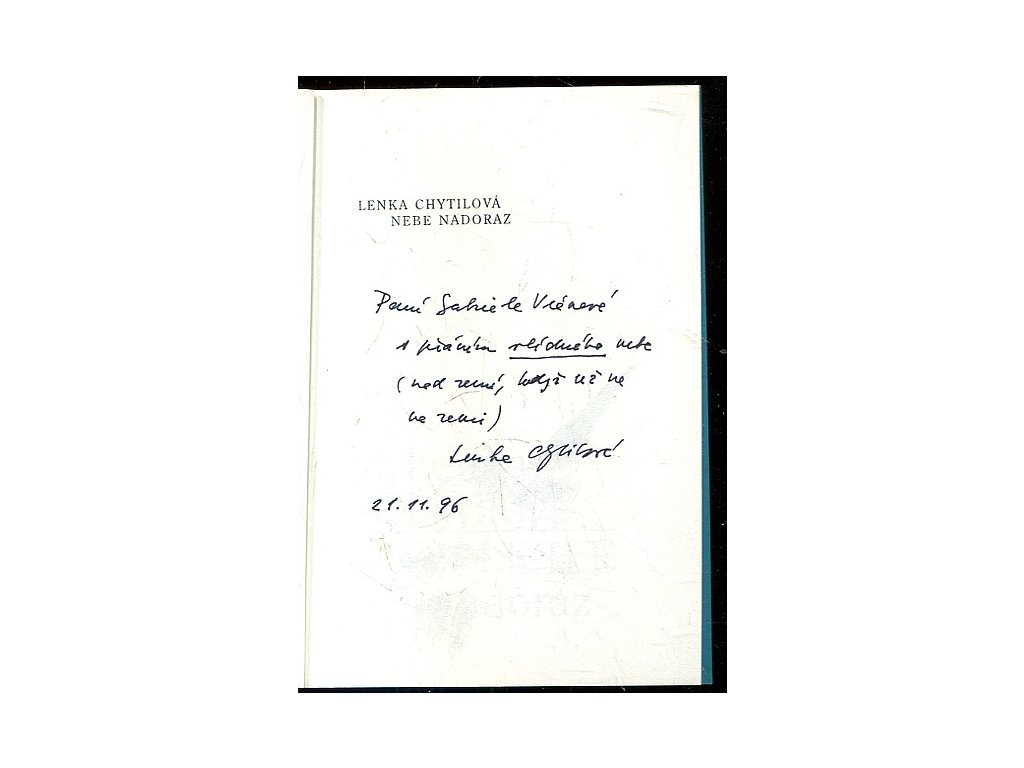 LENKA CHYTILOVÁ
NEBE NADORAZ
Paní Gabriele Vránové
s přáním vlídného nebe
(nad zemí, když už ne
na zemi)
Lenka Chytilová
21. 11. 96